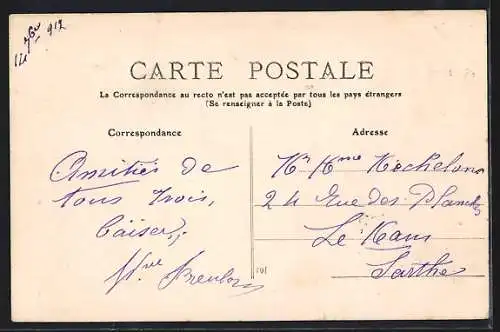 14 7bre 912
CARTE POSTALE
La Correspondance au recto n'est pas acceptée par tous les pays étrangers
(Se renseigner à la Poste)
Correspondance
Adresse
Amitiés de
tous trois,
baisers,
Mr Mme
24 Rue des Planches
Le Mans
Sarthe